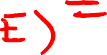 E) =